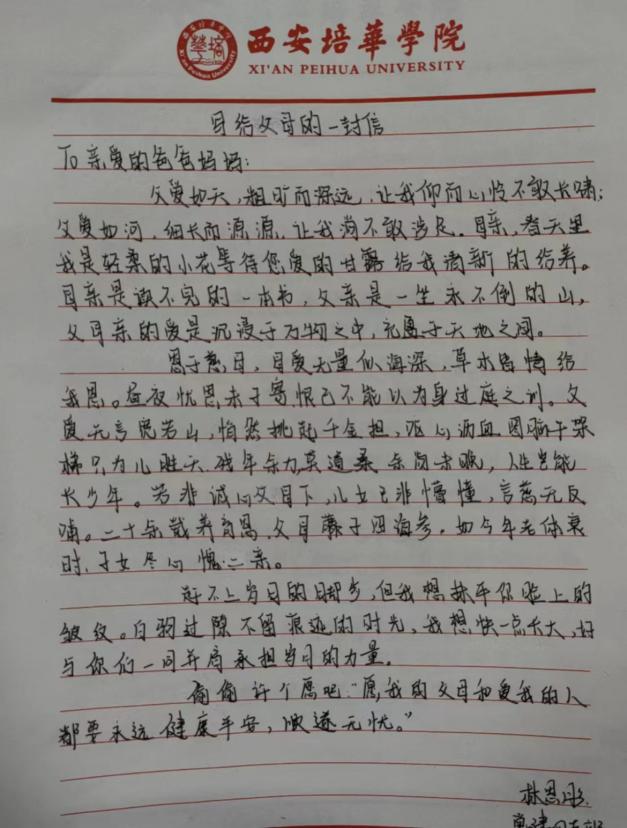 西安培華學院
XI'AN PEIHUA UNIVERSITY
写给父母的一封信
To 亲爱的爸爸妈妈：
父爱如天，粗旷而深远，让我仰而心怜不敢长啸；
父爱如河，细长而源源，让我淌不敢涉足。母亲，春天里
我是轻柔的小花等待您爱的甘露给我清新的给养。
母亲是读不完的一本书，父亲是一生永不倒的山，
父母亲的爱是沉浸于万物之中，充盈于天地之间。
恩于慈母，母爱无量似海深，草木皆情给
我恩。昼夜忧思赤子寄恨己不能以为身过庭之训。父
爱无言宛若山，怡然挑起千金担，沥血
只为儿胜天 残年余力 人生岂能
长少年。若非诚心父母下，儿女已非懵懂，言慈无反
哺。二十余载养育恩，父母 于四海参，如今年老体衰
时，子女尽心愧二亲。
赶不上岁月的脚步，但我想抹平你脸上的
皱纹。白驹过隙不留痕迹的时光，我想快一点长大，好
与你们一同并肩承担岁月的力量。
偷偷许个愿吧“愿我的父母和爱我的人
都要永远健康平安，顺遂无忧。”
林恩彤